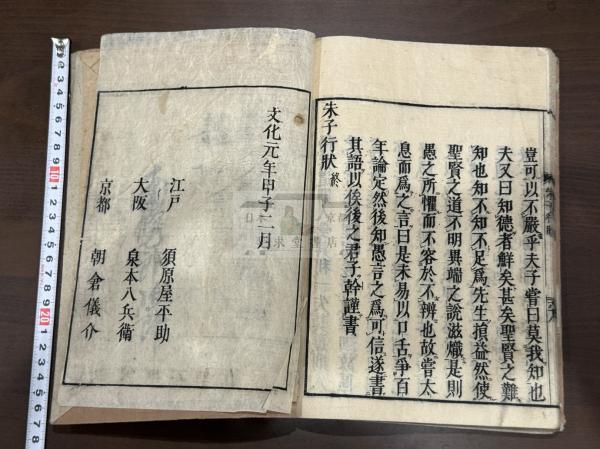 豈可以不嚴乎夫子嘗曰莫我知也
夫又曰知德者鮮矣甚矣聖賢之難
知也知不知不足爲先生損益然使
聖賢之道不明異端之説滋熾是則
愚之所懼而不容於不辨也故嘗太
息而爲之言曰是未易以口舌爭百
年論定然後知愚言之爲可信遂書
其語以俟後之君子幹謹書
朱子行狀終
文化元年甲子二月
江戸 須原屋平助
大阪 泉本八兵衛
京都 朝倉儀介